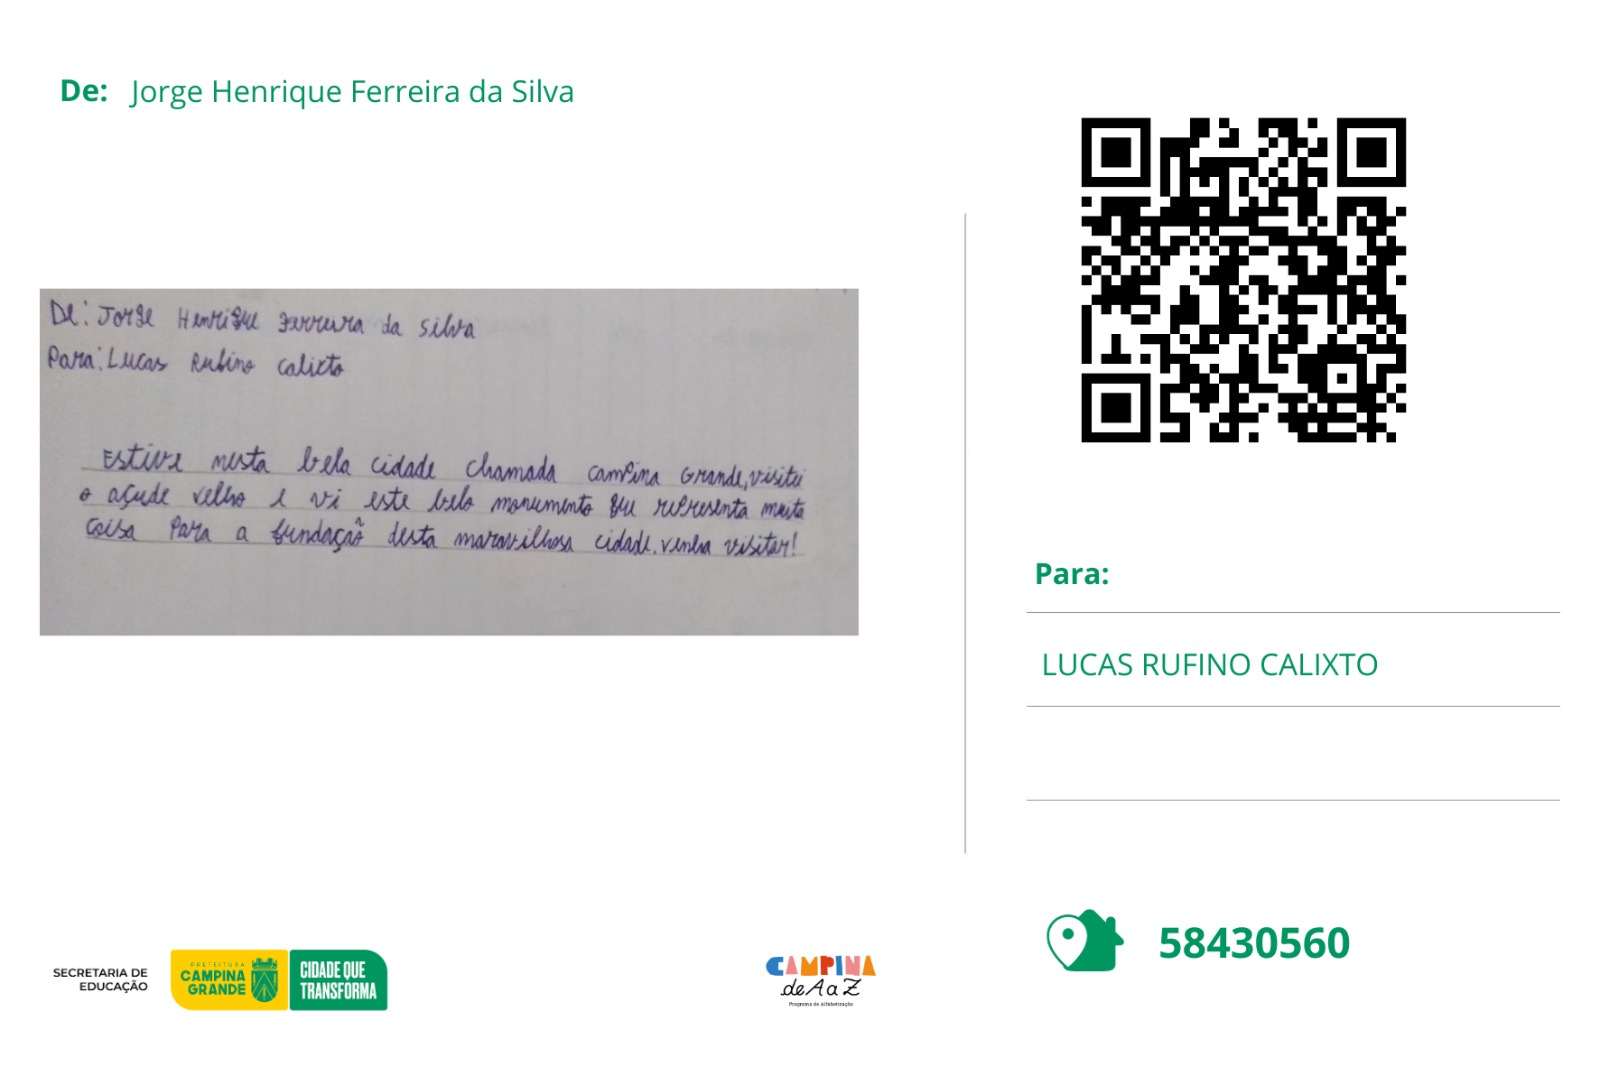 De: Jorge Henrique Ferreira da Silva
De: Jorge Henrique Ferreira da silva
Para: Lucas Rufino Calixto
Estive nesta bela cidade chamada campina Grande, visitei
o açude velho e vi este belo monumento que representa muita
coisa para a fundação desta maravilhosa cidade. venha visitar!
Para:
LUCAS RUFINO CALIXTO
58430560
SECRETARIA DE
EDUCAÇÃO
PREFEITURA
CAMPINA
GRANDE
CIDADE QUE
TRANSFORMA
CAMPINA
de A a Z
Programa de Alfabetização